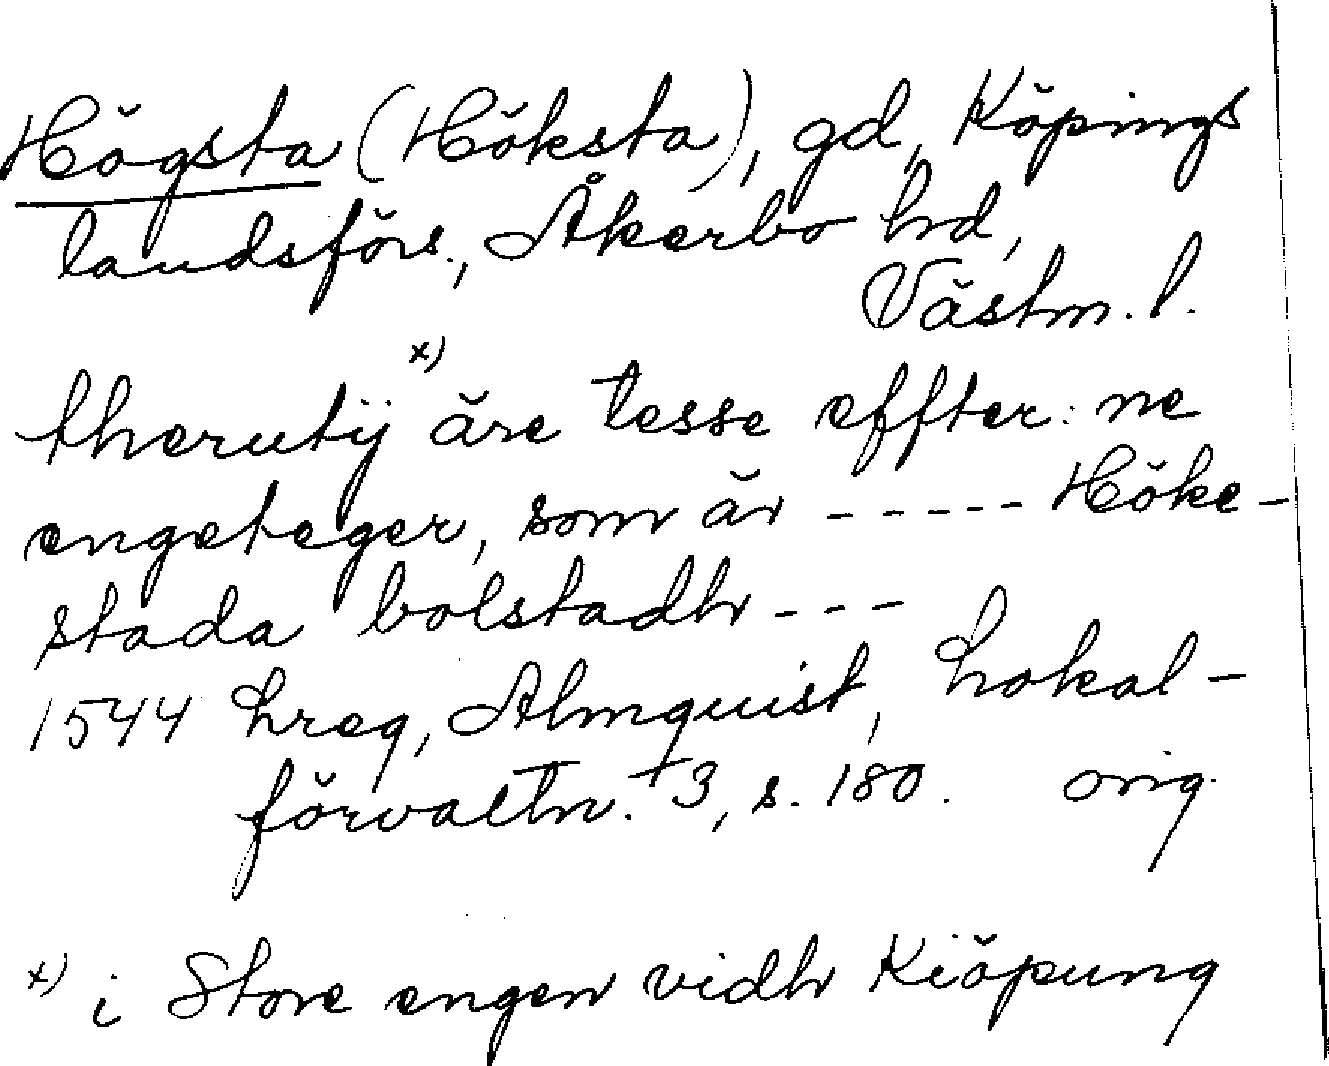 Högsta (Höksta), gd, Köpings
landsförs., Åkerbo hd,
Västm. l.
therutij x) äre tesse effter: ne
engeteger, som är ----- Höke-
stada bolstadh ---
1544 hreg, Almquist, Lokal-
förvaltn. 3, s. 180. orig.
x) i Store engen vidh Kiöpung